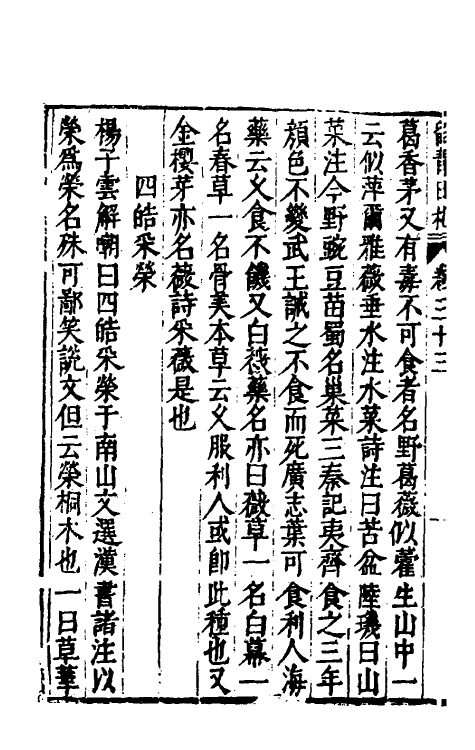 留青日札 卷三十三
葛香茅又有毒不可食者名野葛薇似藿生山中一
云似萍爾雅薇垂水注水菜詩注曰苦益陸璣曰山
菜注今野豌豆苗蜀名巢菜三秦記夷齊食之三年
顔色不變武王誡之不食而死廣志葉可食利人海
藥云乂食不饑又白薇藥名亦曰薇草一名白幕一
名春草一名骨美本草云乂服利人或卽此種也又
金櫻芽亦名薇詩采薇是也
四皓采榮
楊子雲解嘲曰四皓采榮于南山文選漢書諸注以
榮爲榮名殊可鄙笑説文但云榮桐木也一曰草華